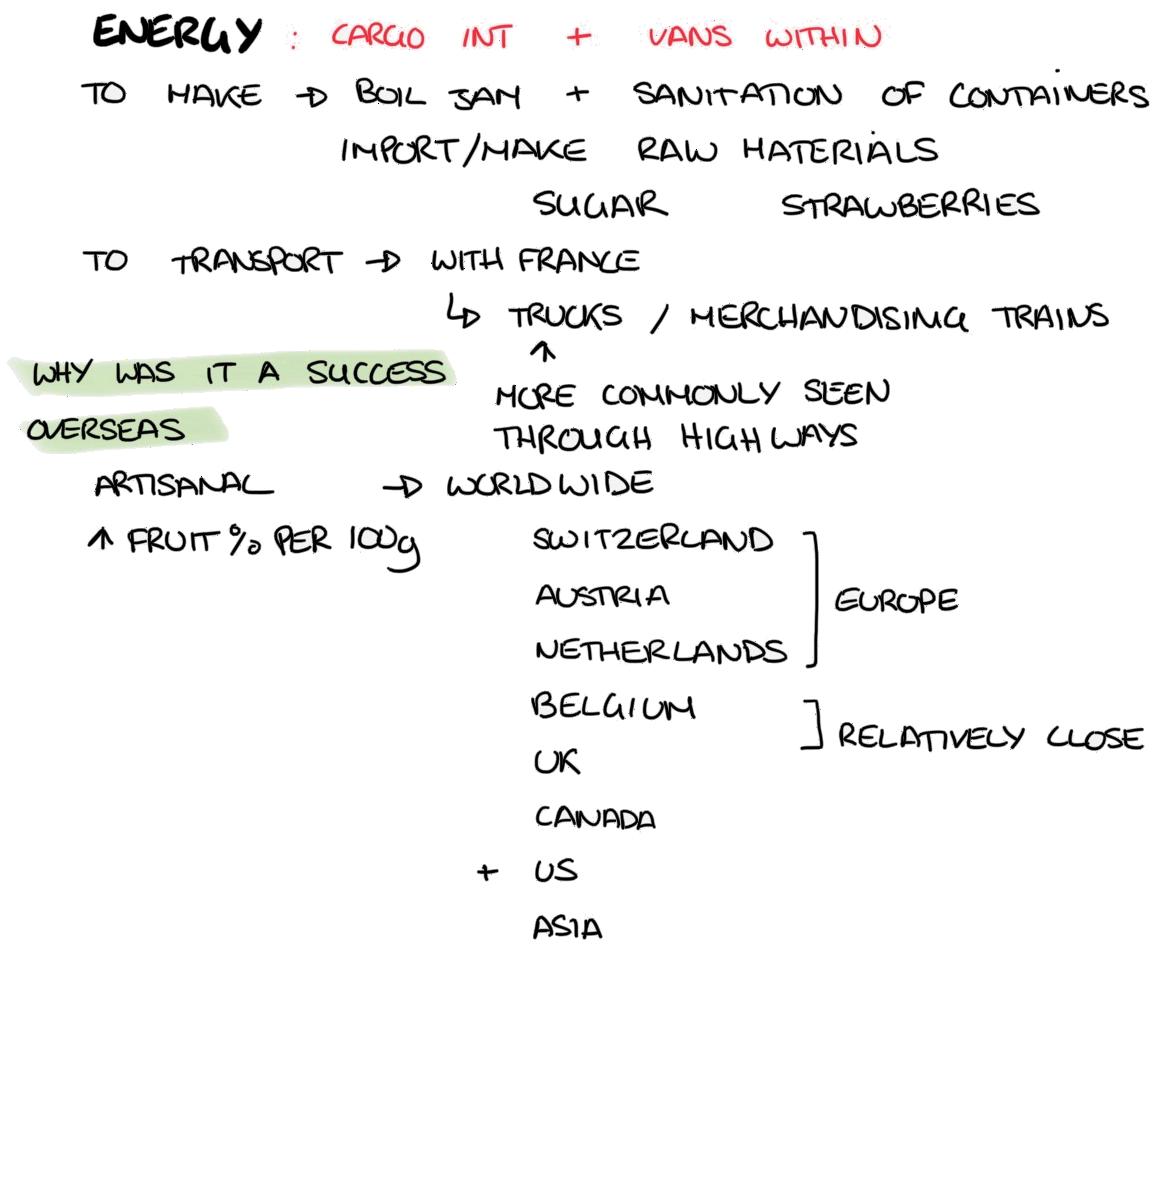 ENERGY : CARGO INT + VANS WITHIN
TO MAKE → BOIL JAM + SANITATION OF CONTAINERS
IMPORT/MAKE RAW MATERIALS
SUGAR STRAWBERRIES
TO TRANSPORT → WITH FRANCE
↳ TRUCKS / MERCHANDISING TRAINS
↑
MORE COMMONLY SEEN
THROUGH HIGHWAYS
WHY WAS IT A SUCCESS
OVERSEAS
ARTISANAL
↑ FRUIT % PER 100g
→ WORLDWIDE
SWITZERLAND
AUSTRIA
NETHERLANDS
] EUROPE
BELGIUM
UK
] RELATIVELY CLOSE
CANADA
+ US
ASIA